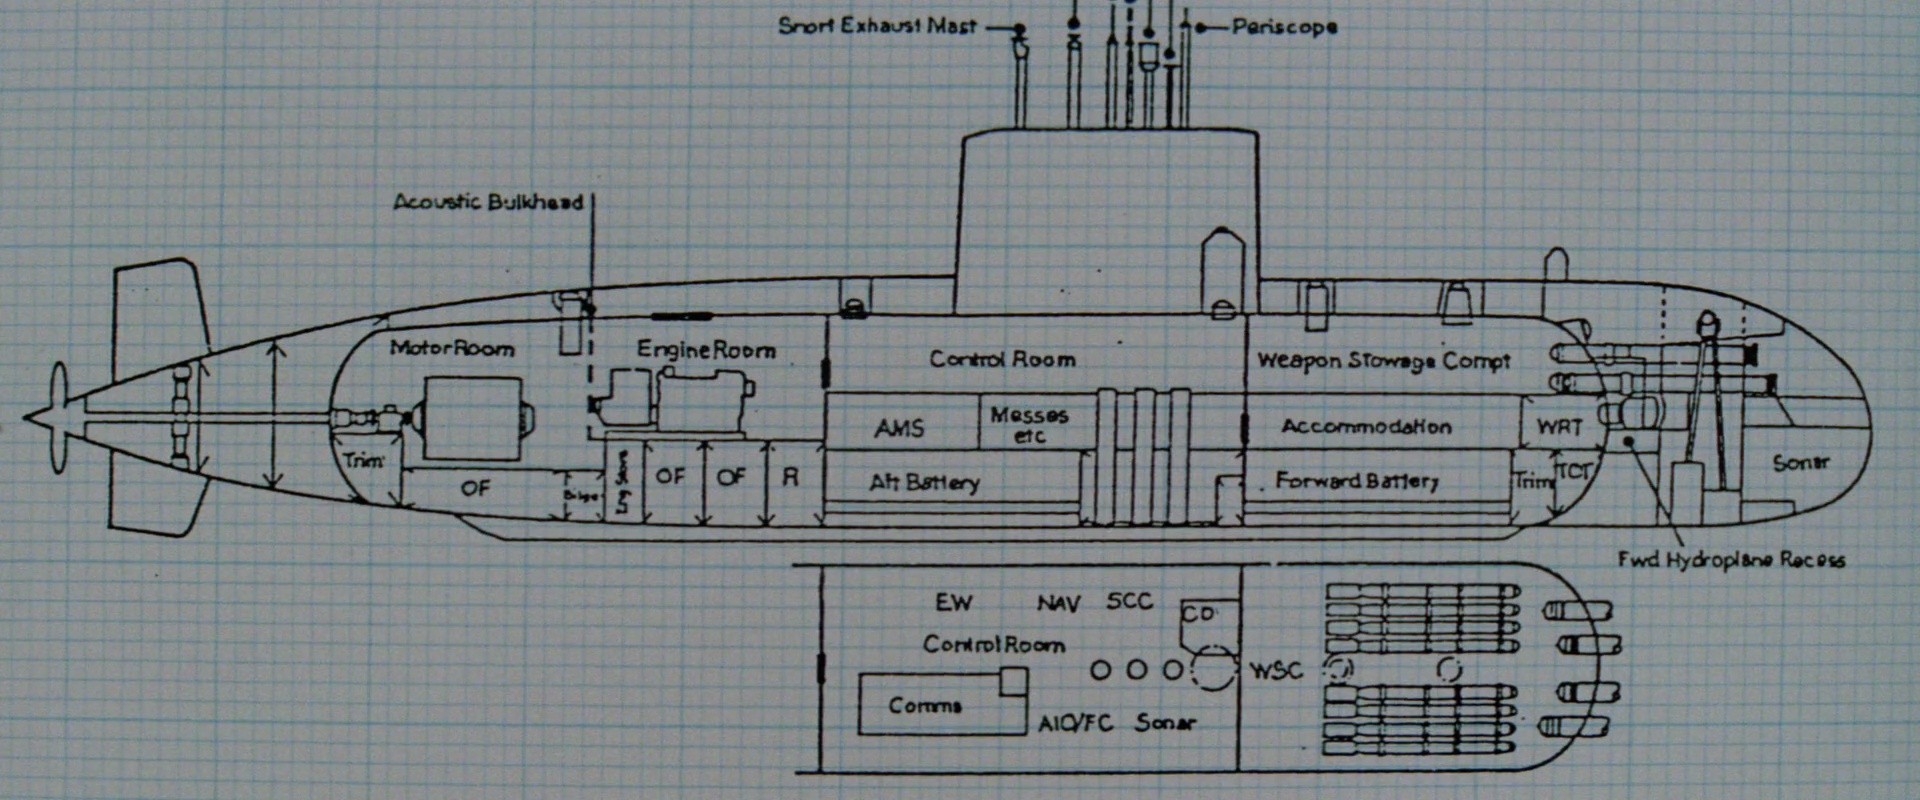 Snort Exhaust Mast
Periscope
Acoustic Bulkhead
Motor Room
Engine Room
Control Room
Weapon Stowage Compt
AMS
Messes
etc
Accommodation
WRT
Trim
OF
Bilge
Eng Store
OF
OF
R
Aft Battery
Forward Battery
Trim
TCT
Sonar
Fwd Hydroplane Recess
EW
NAV
SCC
CO
Control Room
WSC
Comms
AIO/FC
Sonar